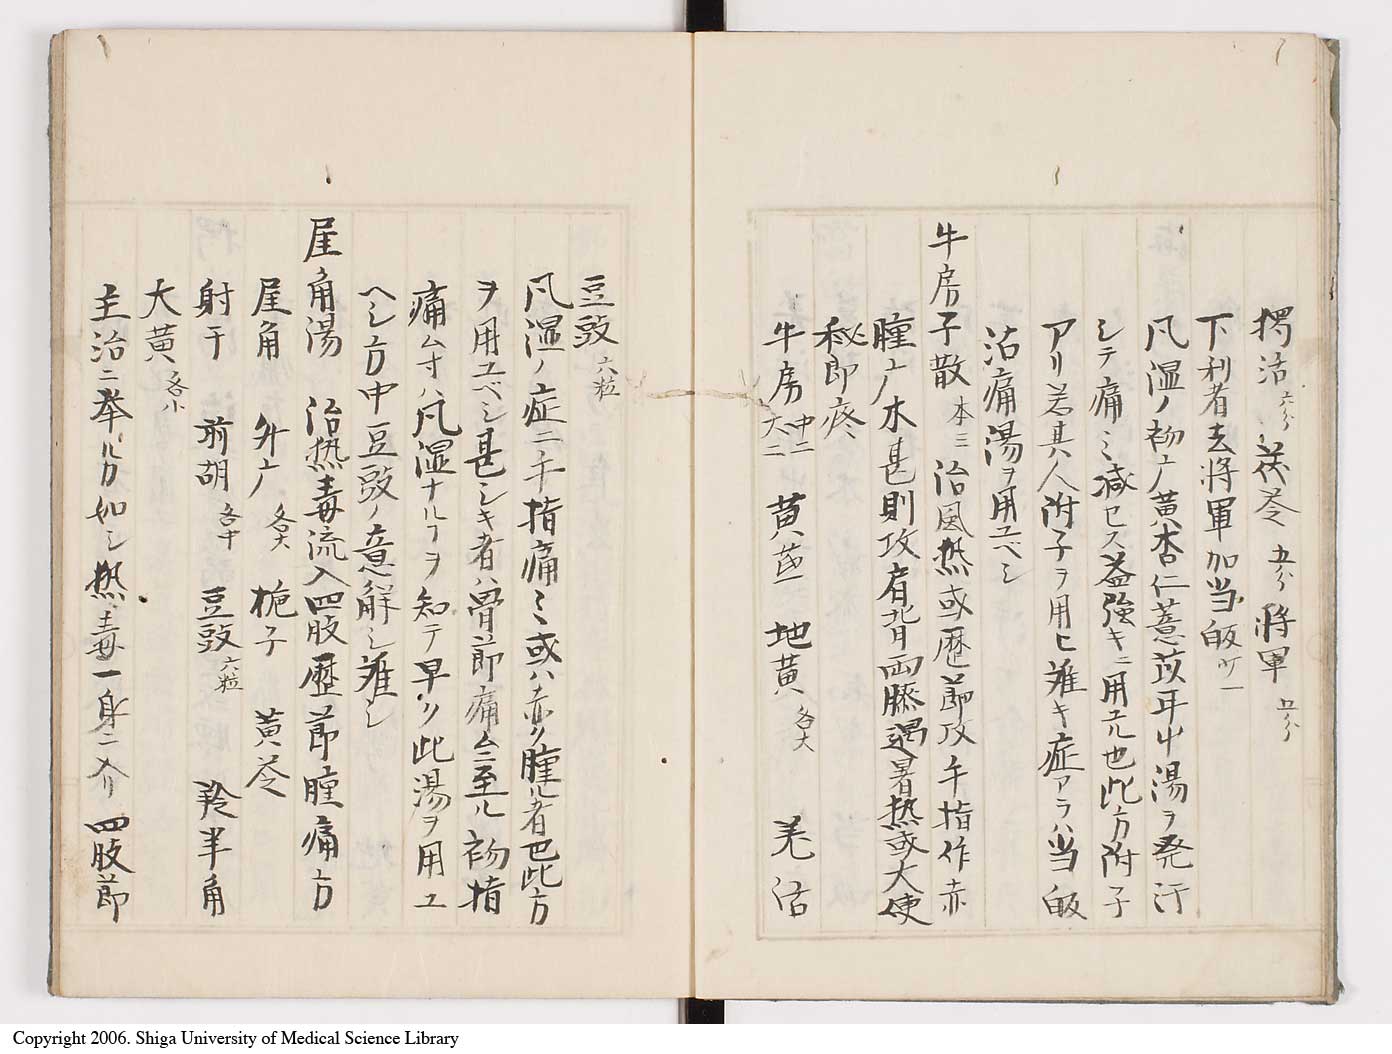 獨活六分 茯苓 五分 將軍 五分
下利者去將軍加当皈サ一
凡湿ノ初エ广黄杏仁薏苡耳屮湯ヲ発汗
シテ痛ミ減セス益強キニ用エル也此方附子
アリ若其人附子ヲ用ヒ難キ症アラハ当皈
沽痛湯ヲ用エベシ
牛房子散 本三 治風热或歴節攻手指作赤
腫广木甚則攻肩背両膝遇暑热或大使
秘即疼
牛房 中二大二 黄 地黄 各大 羌活
豆豉 六粒
凡湿ノ症ニ手指痛ミ或ハ赤ク腫ル者也此方
ヲ用ユベシ甚シキ者ハ骨節痛ムニ至ル初指
痛ム寸ハ凡湿ナルヿヲ知テ早ク此湯ヲ用ユ
ヘシ方中豆豉ノ意解シ難シ
犀角湯 治热毒流入四肢歴節腫痛方
犀角 升广 各大 梔子 黄芩
射干 前胡 各中 豆豉 六粒 羚羊角
大黄 各小
主治ニ挙ル如シ热毒一身ニ介 四肢節
Copyright 2006. Shiga University of Medical Science Library